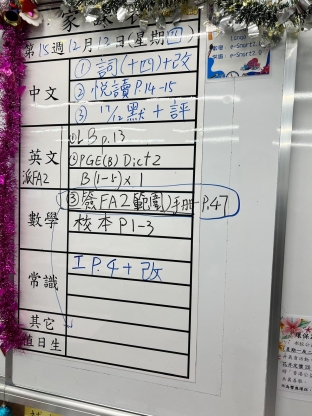 家課
第15週12月12日(星期四)
中文
① 詞(十四)+改
② 悦讀P.14-15
③ 17/12 默+評
英文
派FA2
①LB p.13
②PGE(B) Dict 2
B(1-5)×1
③簽FA2範圍)手冊-P.47
數學
校本P1-3
常識
工P.4+改
其它
值日生
e-Smart